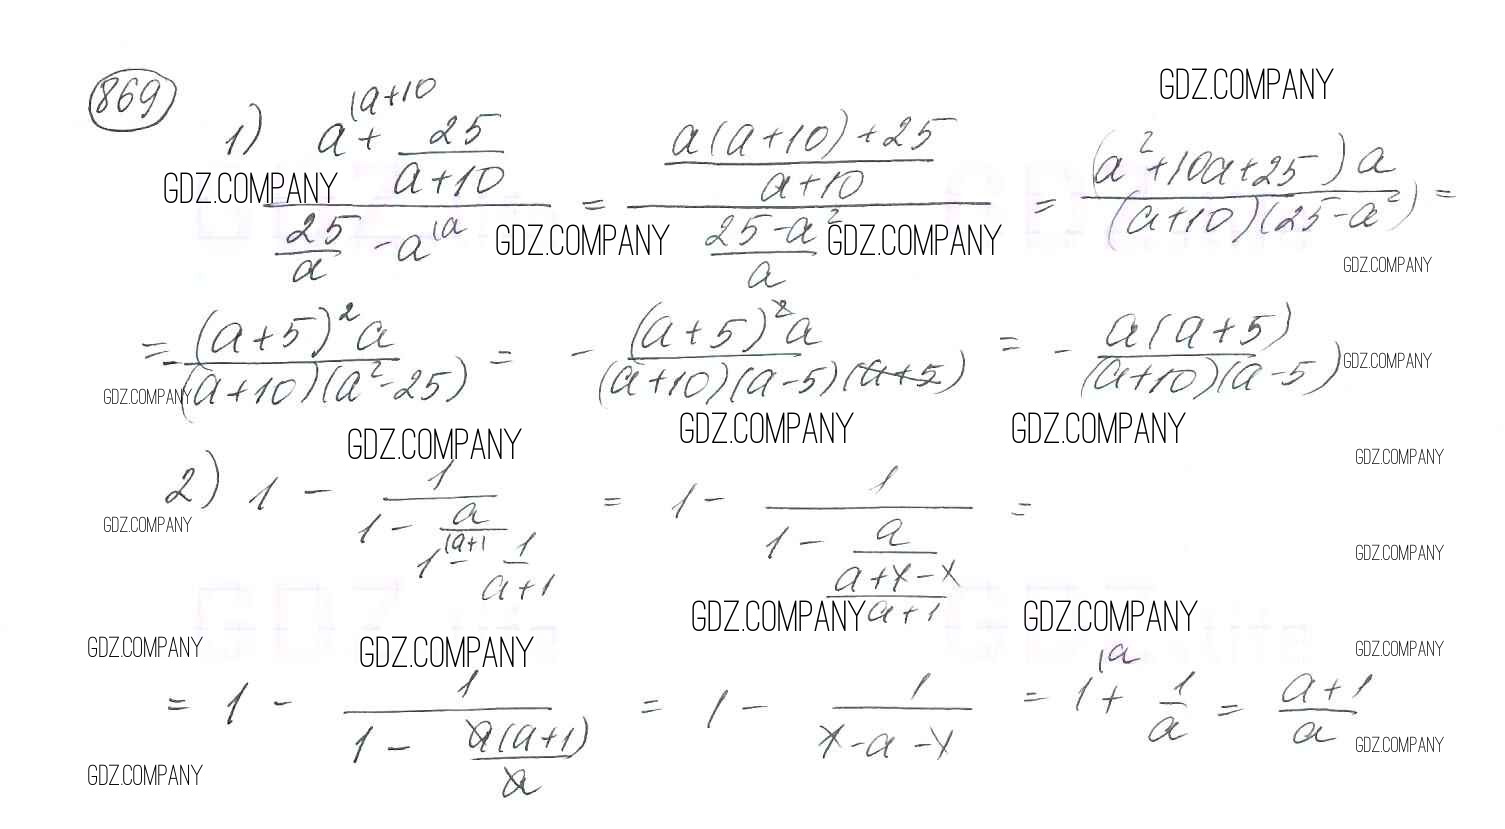 869
GDZ.COMPANY
1) (a + 25/(a+10)) / (25/a - a) = ((a(a+10)+25)/(a+10)) / ((25-a²)/a) = (a²+10a+25)a / (a+10)(25-a²) =
(a+10
(a
GDZ.COMPANY
GDZ.COMPANY GDZ.COMPANY
GDZ.COMPANY
= - (a+5)²a / (a+10)(a²-25) = - (a+5)²a / (a+10)(a-5)(a+5) = - a(a+5) / (a+10)(a-5)
GDZ.COMPANY
GDZ.COMPANY
GDZ.COMPANY GDZ.COMPANY GDZ.COMPANY
GDZ.COMPANY
2) 1 - 1/(1 - a/(1 - 1/(a+1))) = 1 - 1/(1 - a/((a+1-1)/(a+1))) =
(a+1
GDZ.COMPANY
GDZ.COMPANY
GDZ.COMPANY GDZ.COMPANY
GDZ.COMPANY GDZ.COMPANY GDZ.COMPANY
= 1 - 1/(1 - a(a+1)/a) = 1 - 1/(1-a-1) = 1 + 1/a = (a+1)/a
(a
GDZ.COMPANY
GDZ.COMPANY